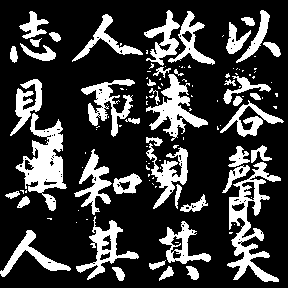 以容聲矣
故未見其
人而知其
志見其人